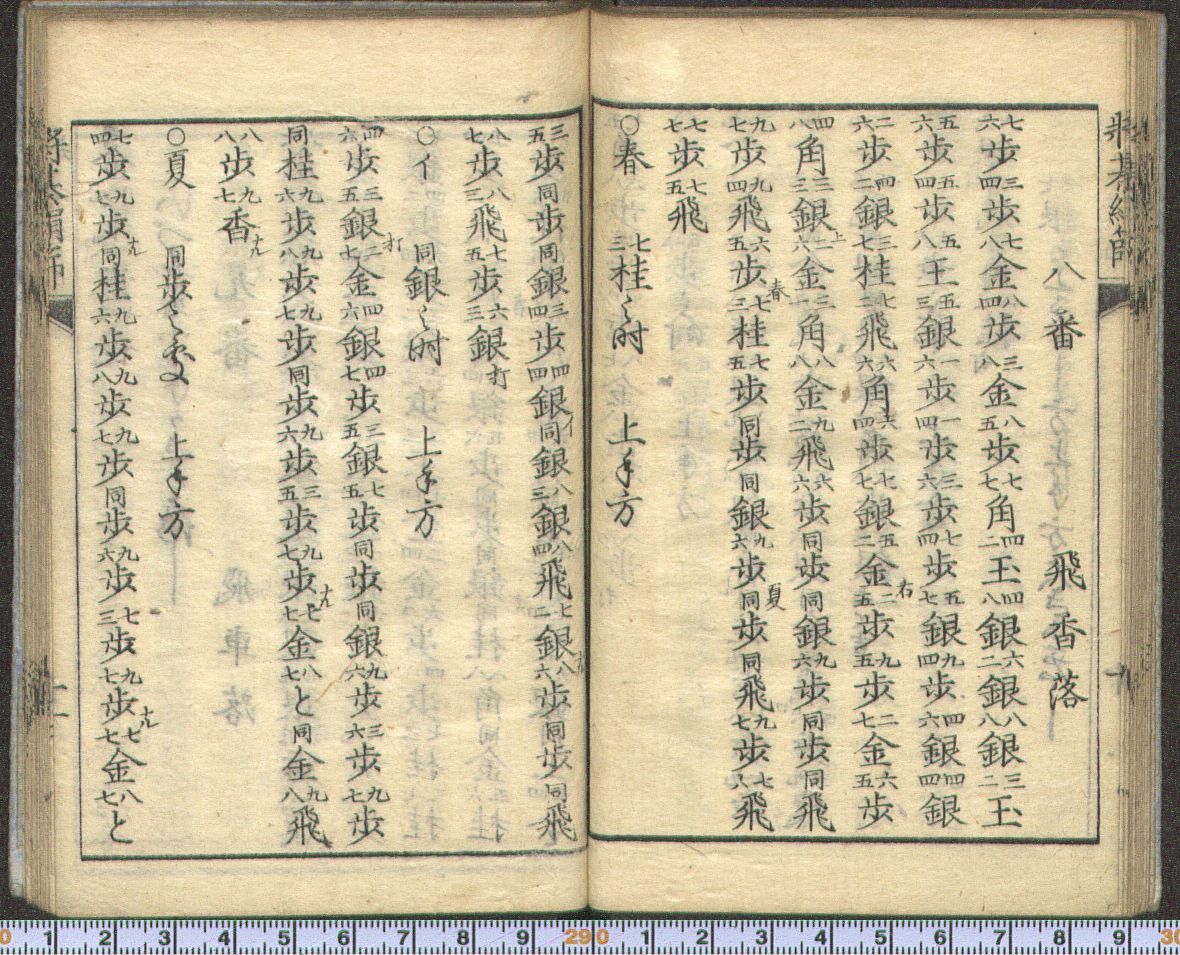 将棊絹篩
八番　飛香落
七六歩 三四歩 七八金 八四歩 三八金 八五歩 七七角 四二玉 四八銀 六二銀 八八銀 三二玉
五六歩 五四歩 五八王 五三銀 一六歩 一四歩 三六歩 七四歩 五七銀 九四歩 四六銀 四四銀
二六歩 四二銀 三七桂 七二飛 六六角 六四歩 七七銀 五二金右 二五歩 九五歩 二七金 六五歩
四八角 三三銀上 二六金 三一角 八八金 九二飛 六六歩 同歩 同銀 九六歩 同歩 同飛
九七歩 九四飛 六五歩春 七三桂 七五歩 同歩 同銀 九六歩夏 同歩 同飛 九七歩 七六飛
七七歩 七五飛
○春 七三桂之時 上手方
三五歩 同歩 同銀 三四歩 四四銀イ 同銀 八三銀 八四飛 七二銀成 八六歩 同歩 同飛
八七歩 八三飛 七五歩 六三銀打
○イ 同銀之時 上手方
四六歩 三五銀打 二七金 四六銀 四七歩 三五銀 七五歩 同歩 同銀 九六歩 三六歩 九七歩
同桂 九六歩 九八歩 九七歩 同歩 九六歩 三五歩 九七歩成 七七金 八七と 同金 九八飛
八八歩 九七香成
○夏 同歩之処 上手方
七四歩 九七歩成 同桂 九六歩 九八歩 九七歩 同歩 九六歩 七三歩 九七歩成 七七金 八七と